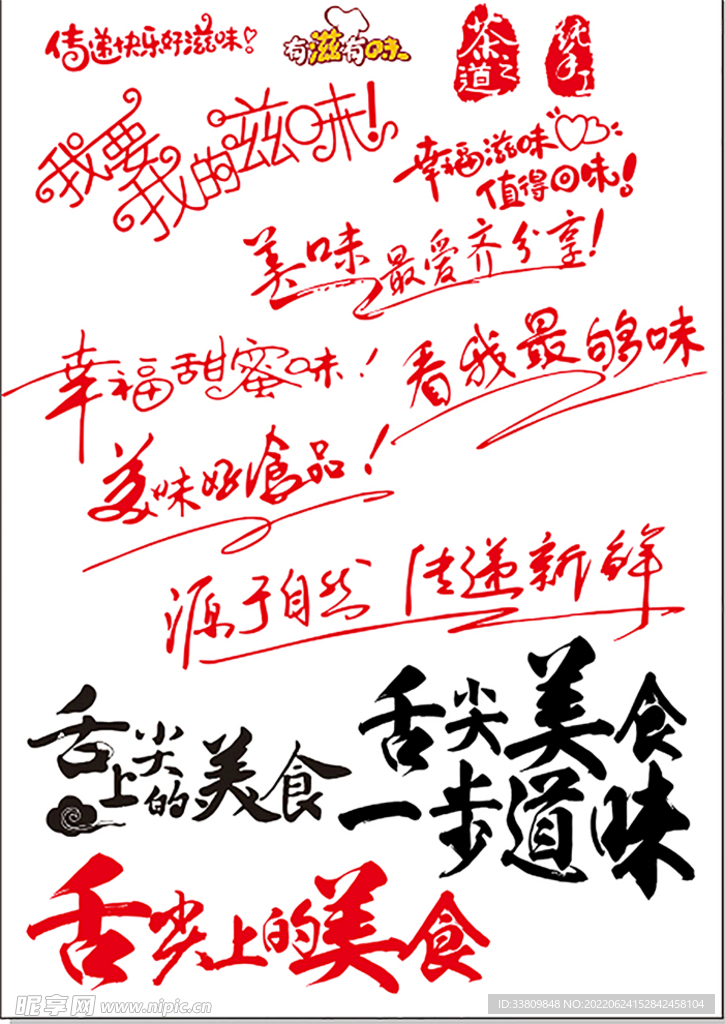 传递快乐好滋味!
有滋有味
茶之道
纯手工
我要我的滋味!
幸福滋味
值得回味!
美味最爱齐分享!
幸福甜蜜味!
看我最够味
美味好食品!
源于自然 传递新鲜
舌尖上的美食
舌尖美食
一步道味
舌尖上的美食
昵享网 www.nipic.cn
ID:33809848 NO:20220624152842458104